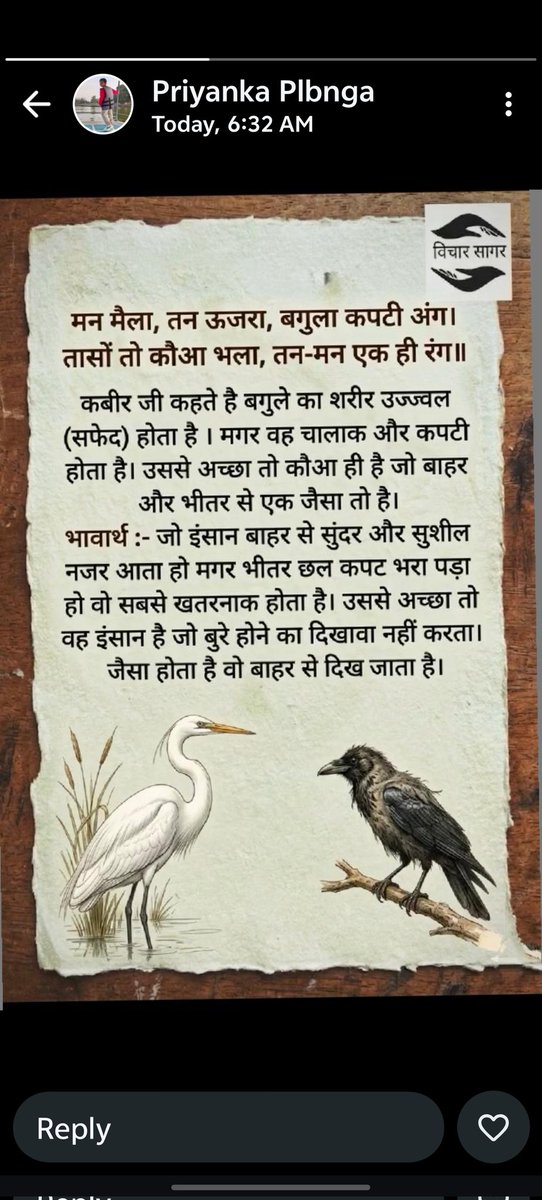 Priyanka Plbnga
Today, 6:32 AM
विचार सागर
मन मैला, तन ऊजरा, बगुला कपटी अंग।
तासों तो कौआ भला, तन-मन एक ही रंग॥
कबीर जी कहते है बगुले का शरीर उज्ज्वल
(सफेद) होता है । मगर वह चालाक और कपटी
होता है। उससे अच्छा तो कौआ ही है जो बाहर
और भीतर से एक जैसा तो है।
भावार्थ :- जो इंसान बाहर से सुंदर और सुशील
नजर आता हो मगर भीतर छल कपट भरा पड़ा
हो वो सबसे खतरनाक होता है। उससे अच्छा तो
वह इंसान है जो बुरे होने का दिखावा नहीं करता।
जैसा होता है वो बाहर से दिख जाता है।
Reply